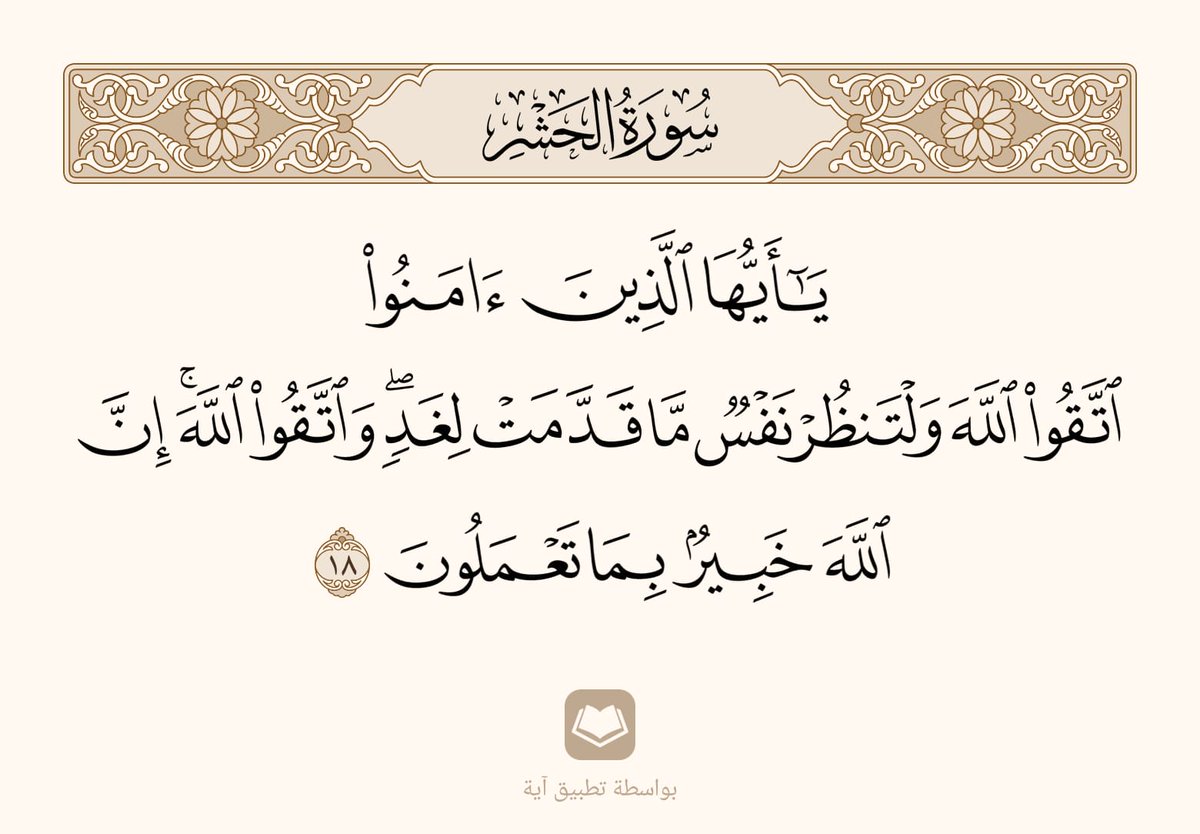 سُورَةُ الحَشْرِ
يَـٰٓأَيُّهَا ٱلَّذِينَ ءَامَنُوا۟
ٱتَّقُوا۟ ٱللَّهَ وَلْتَنظُرْ نَفْسٌۭ مَّا قَدَّمَتْ لِغَدٍۢ ۖ وَٱتَّقُوا۟ ٱللَّهَ ۚ إِنَّ
ٱللَّهَ خَبِيرٌۢ بِمَا تَعْمَلُونَ ١٨
بواسطة تطبيق آية